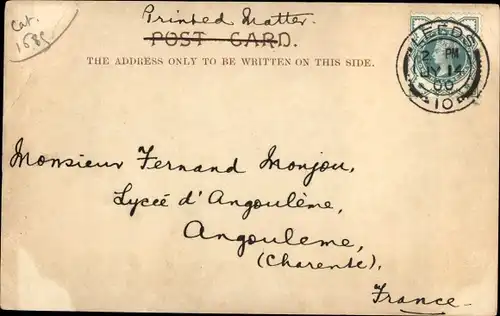 Cat.
1585
Printed Matter.
POST CARD.
THE ADDRESS ONLY TO BE WRITTEN ON THIS SIDE.
LEEDS
PM
14
00
10
Monsieur Fernand Monjou,
Lycée d'Angoulême,
Angouleme,
(Charente),
France